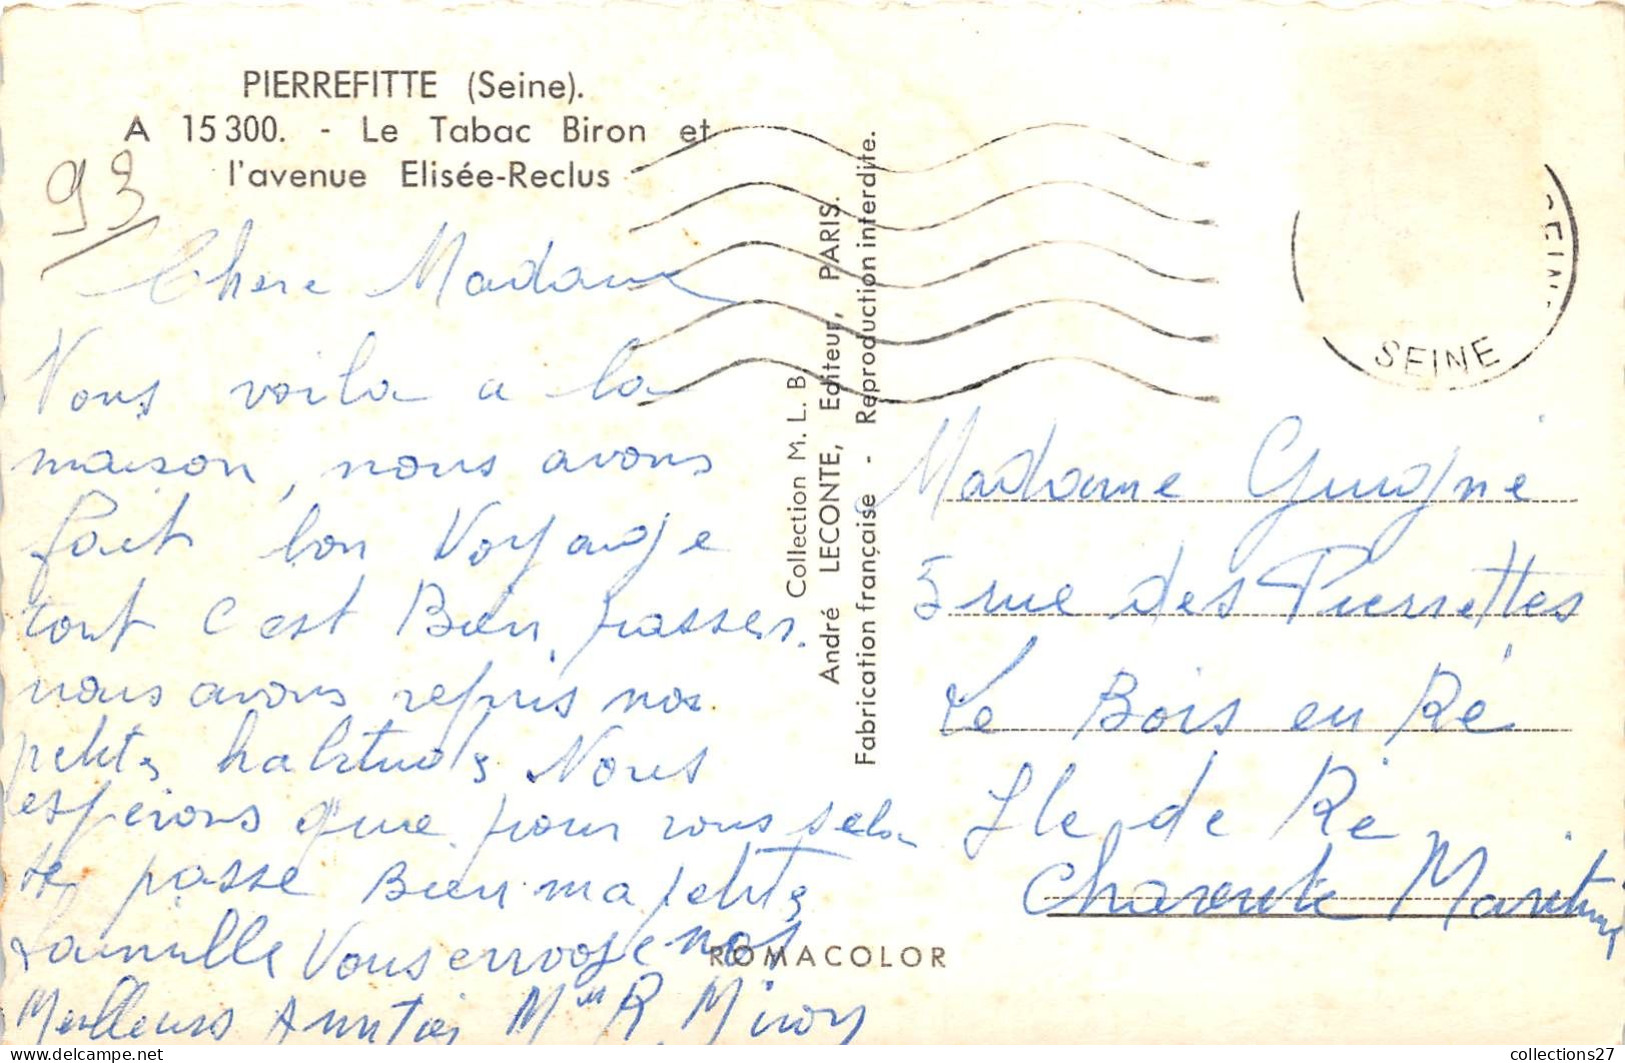 PIERREFITTE (Seine).
A 15 300. - Le Tabac Biron et
l'avenue Elisée-Reclus
93
Chere Madame
Nous voila a la
maison, nous avons
fait bon Voyage
tout c'est Bien passer.
nous avons repris nos
petits habitudes Nous
espérons que pour vous sela
se passe Bien ma petite
famille Vous envoye nos
Meilleurs Amitiés Mme R Miroy
Collection M. L. B.
André LECONTE, Editeur, PARIS.
Fabrication française - Reproduction interdite.
SEINE
Madame Guigne
5 rue des Pierrettes
Le Bois en Ré
Ile de Ré
Charente Maritime
ROMACOLOR
collections27